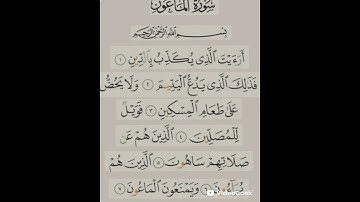 سُورَةُ الْمَاعُونِ
بِسْمِ اللَّهِ الرَّحْمَٰنِ الرَّحِيمِ
أَرَءَيْتَ الَّذِى يُكَذِّبُ بِالدِّينِ ١
فَذَٰلِكَ الَّذِى يَدُعُّ الْيَتِيمَ ٢ وَلَا يَحُضُّ
عَلَىٰ طَعَامِ الْمِسْكِينِ ٣ فَوَيْلٌ
لِّلْمُصَلِّينَ ٤ الَّذِينَ هُمْ عَن
صَلَاتِهِمْ سَاهُونَ ٥ الَّذِينَ هُمْ
يُرَآءُونَ ٦ وَيَمْنَعُونَ الْمَاعُونَ ٧